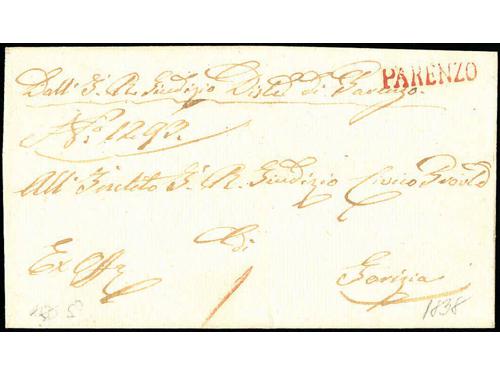 PARENZO
Dall' I. R. Giudizio Distl. di Parenzo.
No. 1293.
All' Inclito I. R. Giudizio Civico Provle
di
Ex Offo
Gorizia
1838